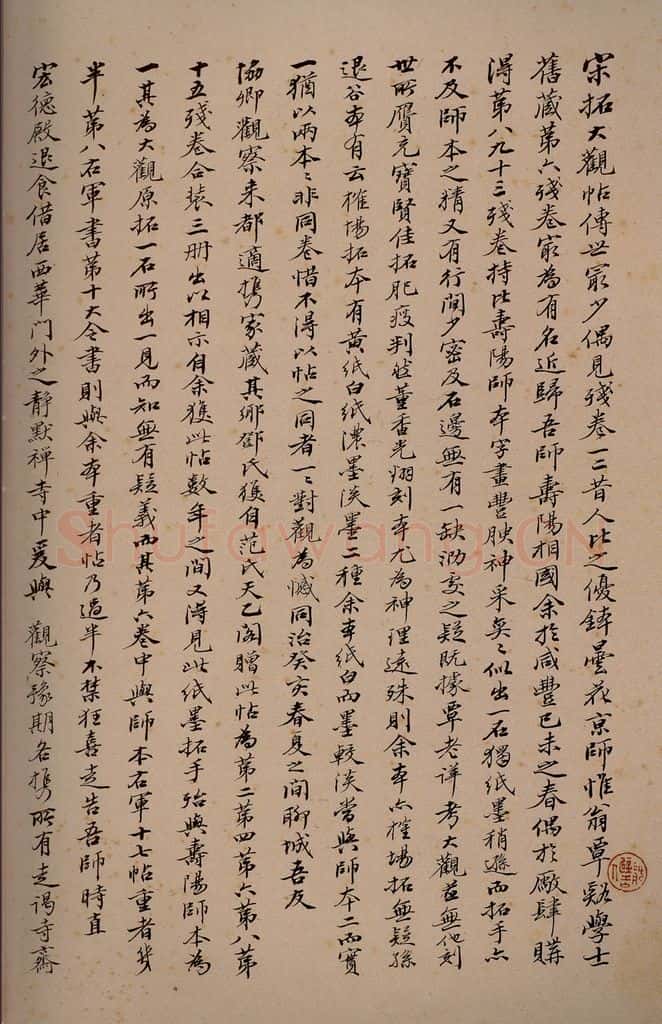 宋拓大觀帖傳世最少偶見殘卷一二昔人比之優鉢曇花京師惟翁覃谿學士
舊藏第六殘卷最為有名近歸吾師壽陽相國余於咸豐己未之春偶於廠肆購
得第八九十三殘卷持比壽陽師本字畫豐腴神采奕〻似出一石獨紙墨稍遜而拓手亦
不及師本之精又有行間少密及石邊無有一缺泐處之疑既據覃老詳考大觀並無他刻
世所贋充寶賢佳拓肥瘦判然董香光翻刻本尤為神理遠殊則余本亦榷場拓無疑孫
退谷本有云榷場拓本有黃紙白紙濃墨淡墨二種余本紙白而墨較淡當與師本二而實
一猶以兩本〻非同卷惜不得以帖之同者一〻對觀為憾同治癸亥春夏之間聊城吾友
協卿觀察來都適攜家藏其鄉鄧氏獲自范氏天乙閣贈此帖為第二第四第六第八第
十五殘卷合裝三册出以相示自余獲此帖數年之間又得見此紙墨拓手殆與壽陽師本為
一其為大觀原拓一石所出一見而知無有疑義而其第六卷中與師本右軍十七帖重者幾
半第八右軍書第十大令書則與余本重者帖乃過半不禁狂喜走告吾師時直
宏德殿退食借居西華門外之靜默禪寺中爰與 觀察豫期各攜所有走謁寺齋
Shufawang.CN